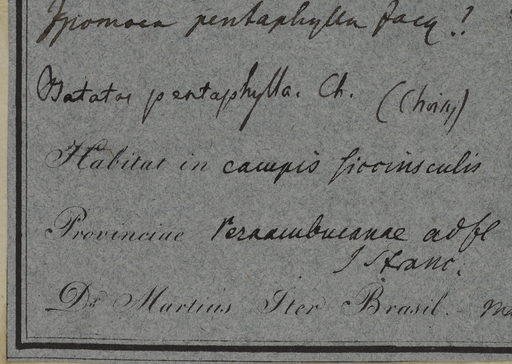 Ipomoea pentaphylla Jacq!!
Batatas pentaphylla. Ch. (Choisy)
Habitat in campis siccinsculis
Provinciae Pernambucanae ad fl
S Franc.
Dr Martius Iter Brasil.